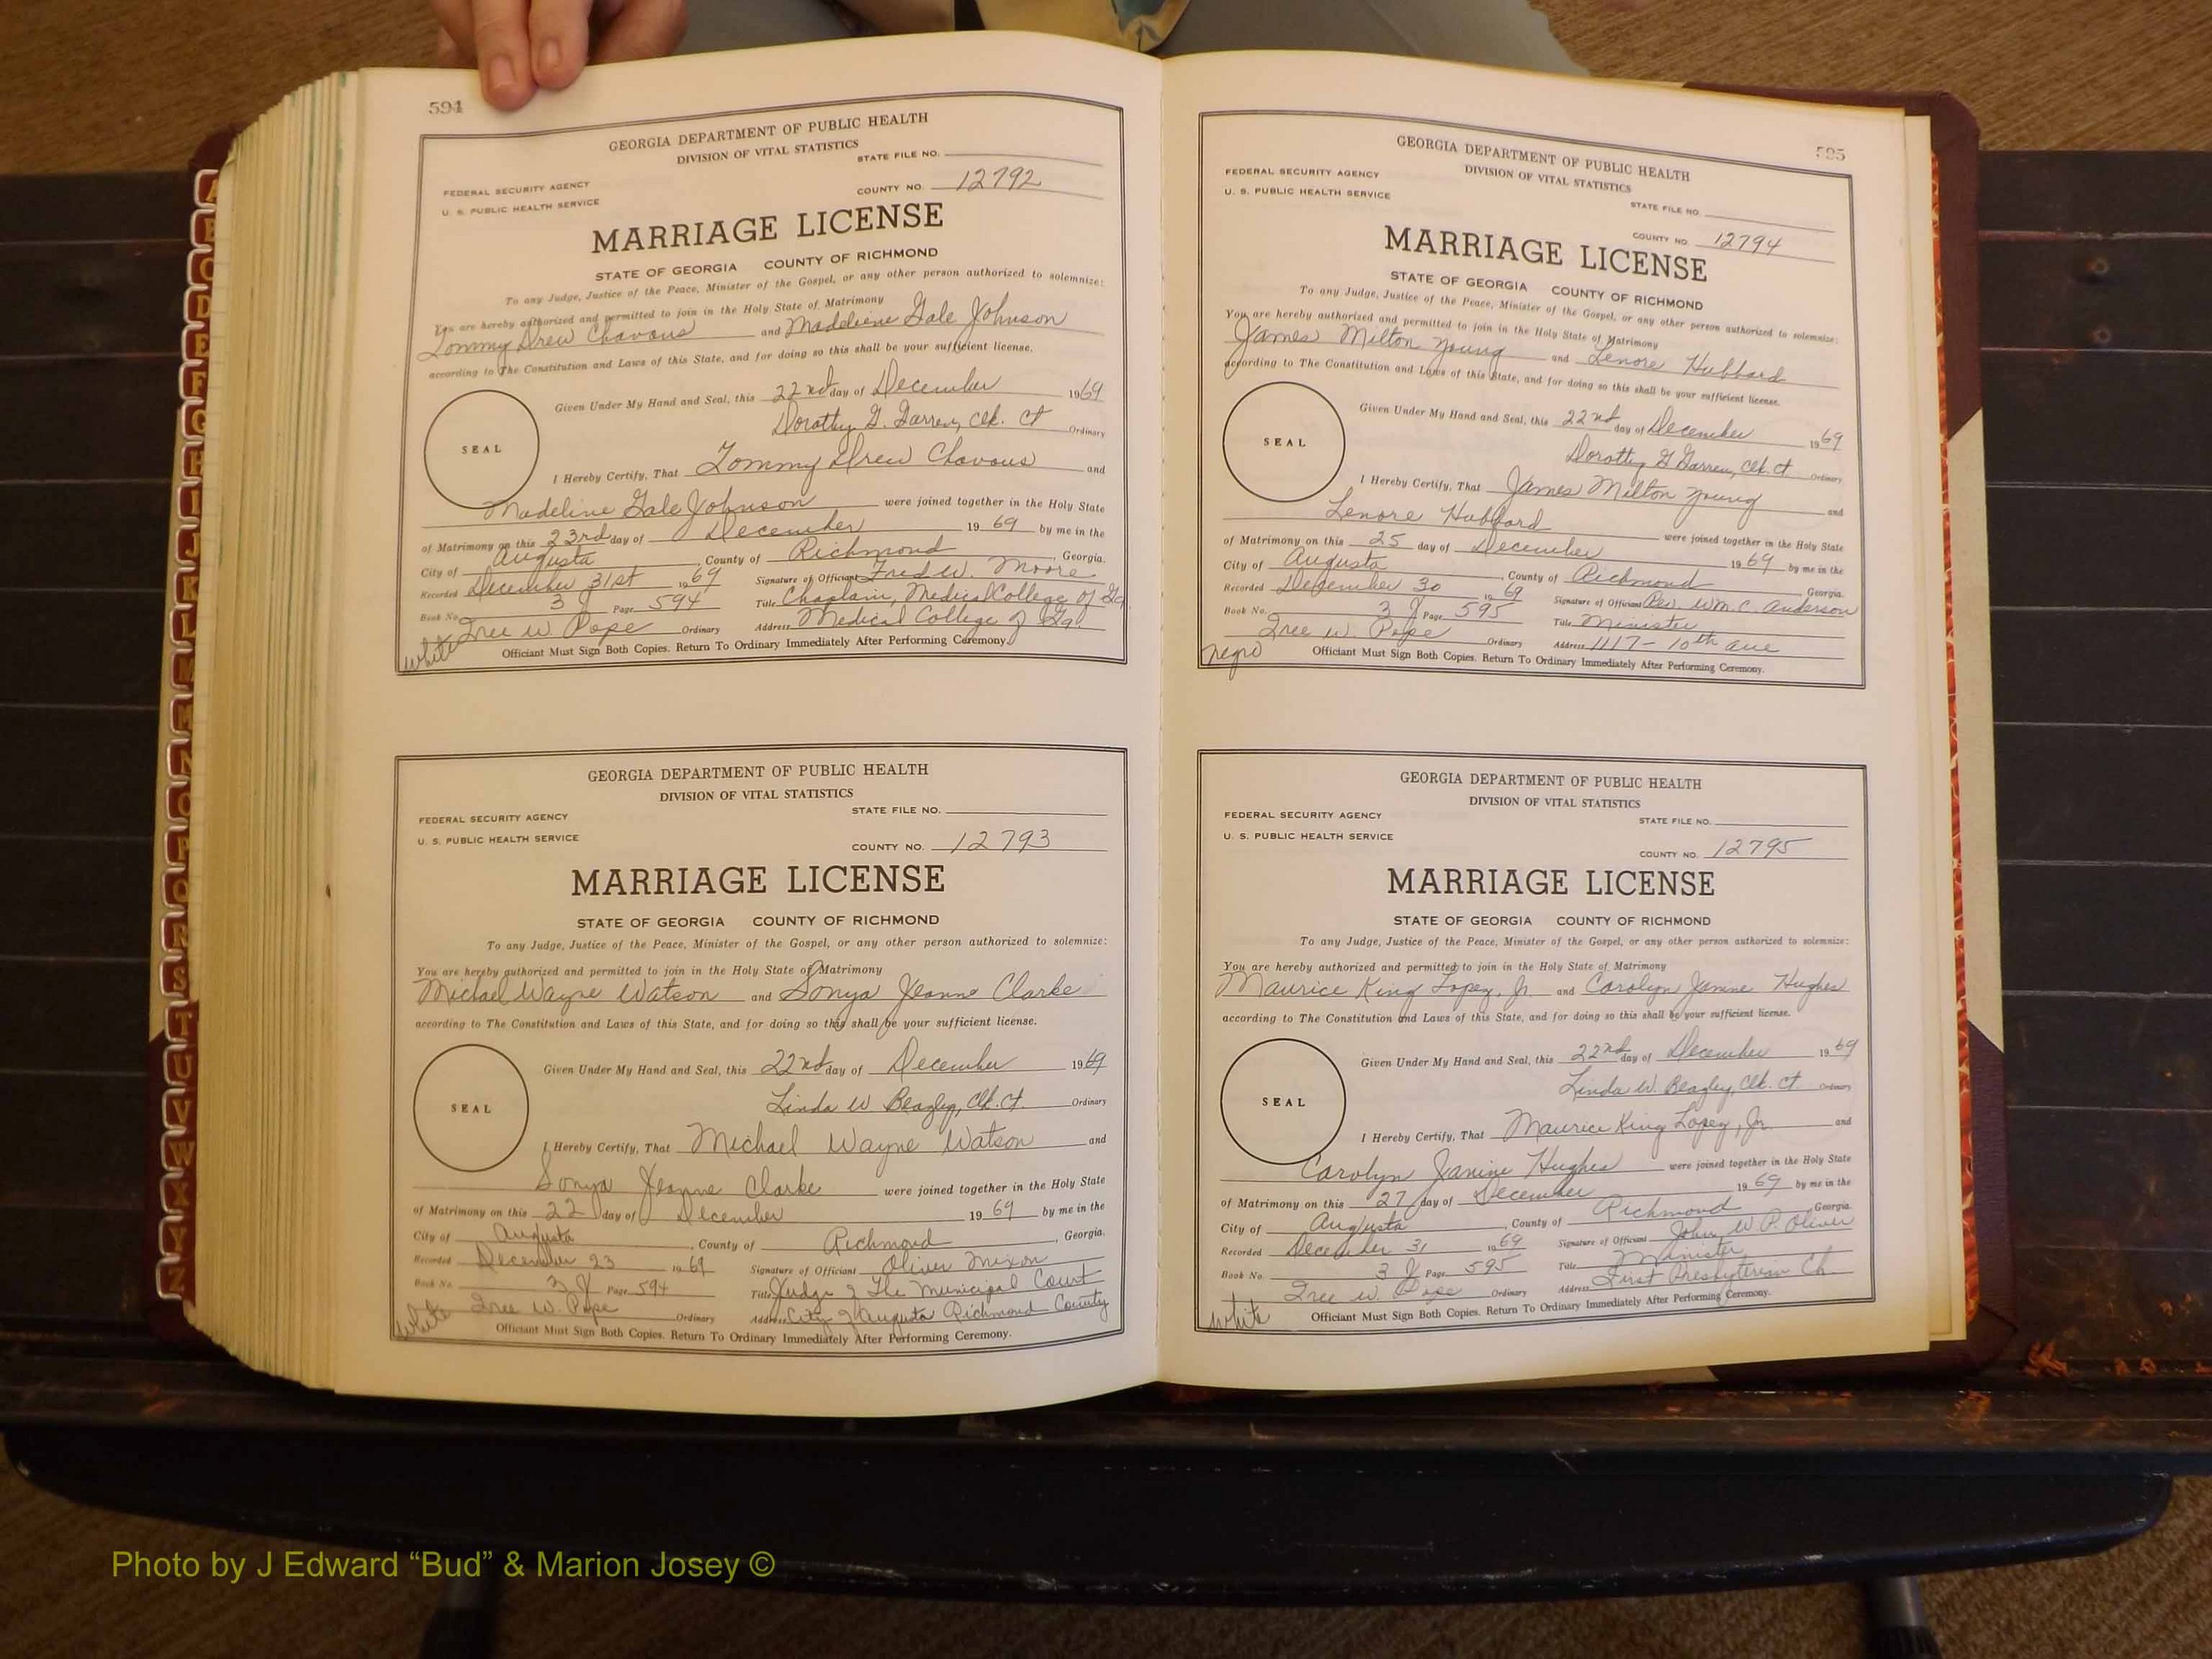 594
GEORGIA DEPARTMENT OF PUBLIC HEALTH
DIVISION OF VITAL STATISTICS
STATE FILE NO.
FEDERAL SECURITY AGENCY
U. S. PUBLIC HEALTH SERVICE
COUNTY NO. 12792
MARRIAGE LICENSE
STATE OF GEORGIA COUNTY OF RICHMOND
To any Judge, Justice of the Peace, Minister of the Gospel, or any other person authorized to solemnize:
You are hereby authorized and permitted to join in the Holy State of Matrimony
Tommy Drew Chavous and Madeliene Gale Johnson
according to The Constitution and Laws of this State, and for doing so this shall be your sufficient license.
Given Under My Hand and Seal, this 22nd day of December 1969
Dorothy G. Garren, Clk. Ct Ordinary
SEAL
I Hereby Certify, That Tommy Drew Chavous and
Madeline Gale Johnson were joined together in the Holy State
of Matrimony on this 23rd day of December 1969 by me in the
City of Augusta, County of Richmond, Georgia.
Recorded December 31st 1969 Signature of Officiant Fred W. Moore
Book No. 3 Page 594 Title Chaplain, Medical College of Ga.
Tree W. Pope Ordinary Address Medical College of Ga.
white Officiant Must Sign Both Copies. Return To Ordinary Immediately After Performing Ceremony.
GEORGIA DEPARTMENT OF PUBLIC HEALTH
DIVISION OF VITAL STATISTICS
STATE FILE NO.
FEDERAL SECURITY AGENCY
U. S. PUBLIC HEALTH SERVICE
COUNTY NO. 12793
MARRIAGE LICENSE
STATE OF GEORGIA COUNTY OF RICHMOND
To any Judge, Justice of the Peace, Minister of the Gospel, or any other person authorized to solemnize:
You are hereby authorized and permitted to join in the Holy State of Matrimony
Michael Wayne Watson and Sonya Jeanne Clarke
according to The Constitution and Laws of this State, and for doing so this shall be your sufficient license.
Given Under My Hand and Seal, this 22nd day of December 1969
Linda W Beazley, Clk. Ct. Ordinary
SEAL
I Hereby Certify, That Michael Wayne Watson and
Sonya Jeanne Clarke were joined together in the Holy State
of Matrimony on this 22 day of December 1969 by me in the
City of Augusta, County of Richmond, Georgia.
Recorded December 23 1969 Signature of Officiant Oliver Mixon
Book No. 3 Page 594 Title Judge of The Municipal Court
Tree W. Pope Ordinary Address City of Augusta Richmond County
white Officiant Must Sign Both Copies. Return To Ordinary Immediately After Performing Ceremony.
595
GEORGIA DEPARTMENT OF PUBLIC HEALTH
DIVISION OF VITAL STATISTICS
FEDERAL SECURITY AGENCY
U. S. PUBLIC HEALTH SERVICE
STATE FILE NO.
COUNTY NO. 12794
MARRIAGE LICENSE
STATE OF GEORGIA COUNTY OF RICHMOND
To any Judge, Justice of the Peace, Minister of the Gospel, or any other person authorized to solemnize:
You are hereby authorized and permitted to join in the Holy State of Matrimony
James Milton Young and Lenore Hubbard
according to The Constitution and Laws of this State, and for doing so this shall be your sufficient license.
Given Under My Hand and Seal, this 22nd day of December 1969
Dorothy G Garren, Clk. Ct. Ordinary
SEAL
I Hereby Certify, That James Milton Young and
Lenore Hubbard were joined together in the Holy State
of Matrimony on this 25 day of December 1969 by me in the
City of Augusta, County of Richmond, Georgia.
Recorded December 30 1969 Signature of Officiant Rev. Wm. C. Anderson
Book No. 3 Page 595 Title Minister
Tree W. Pope Ordinary Address 1117 - 10th ave
negro Officiant Must Sign Both Copies. Return To Ordinary Immediately After Performing Ceremony.
GEORGIA DEPARTMENT OF PUBLIC HEALTH
DIVISION OF VITAL STATISTICS
FEDERAL SECURITY AGENCY
STATE FILE NO.
U. S. PUBLIC HEALTH SERVICE
COUNTY NO. 12795
MARRIAGE LICENSE
STATE OF GEORGIA COUNTY OF RICHMOND
To any Judge, Justice of the Peace, Minister of the Gospel, or any other person authorized to solemnize:
You are hereby authorized and permitted to join in the Holy State of Matrimony
Maurice King Lopez, Jr. and Carolyn Janine Hughes
according to The Constitution and Laws of this State, and for doing so this shall be your sufficient license.
Given Under My Hand and Seal, this 22nd day of December 1969
Linda W. Beazley, Clk. Ct. Ordinary
SEAL
I Hereby Certify, That Maurice King Lopez, Jr. and
Carolyn Janine Hughes were joined together in the Holy State
of Matrimony on this 27 day of December 1969 by me in the
City of Augusta, County of Richmond Georgia.
Recorded December 31 1969 Signature of Officiant John W P. Oliver
Book No. 3 Page 595 Title Minister
Tree W. Pope Ordinary Address First Presbyterian Ch.
white Officiant Must Sign Both Copies. Return To Ordinary Immediately After Performing Ceremony.
A
B
C
D
E
F
G
H
I
J
K
L
M
Mc
N
O
P
Q
R
S
T
U
V
W
X
Y
Z
Photo by J Edward “Bud” & Marion Josey ©